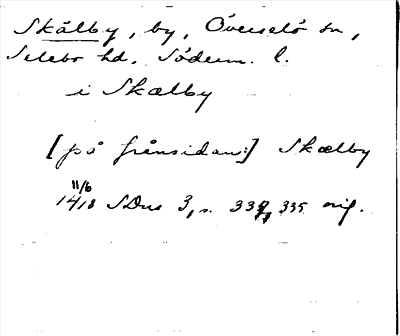 Skälby, by, Överselö sn,
Selebo hd. Söderm. l.
i Skælby
[på frånsidan:] Skælby
11/6
1418 SDns 3, s. 334, 335 orig.